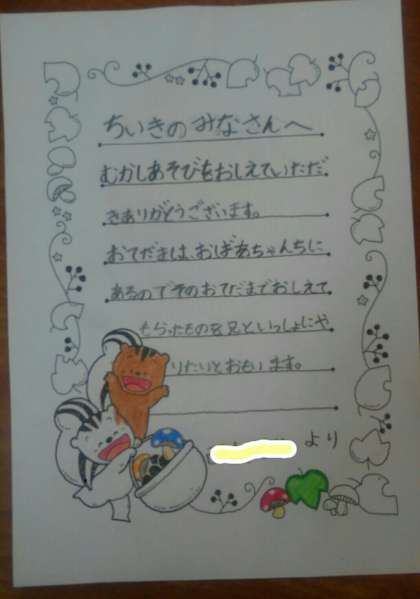 ちいきのみなさんへ
むかしあそびをおしえていただ
きありがとうございます。
おてだまは、おばあちゃんちに
あるのでそのおてだまでおしえて
もらったものを兄といっしょにや
りたいとおもいます。
より